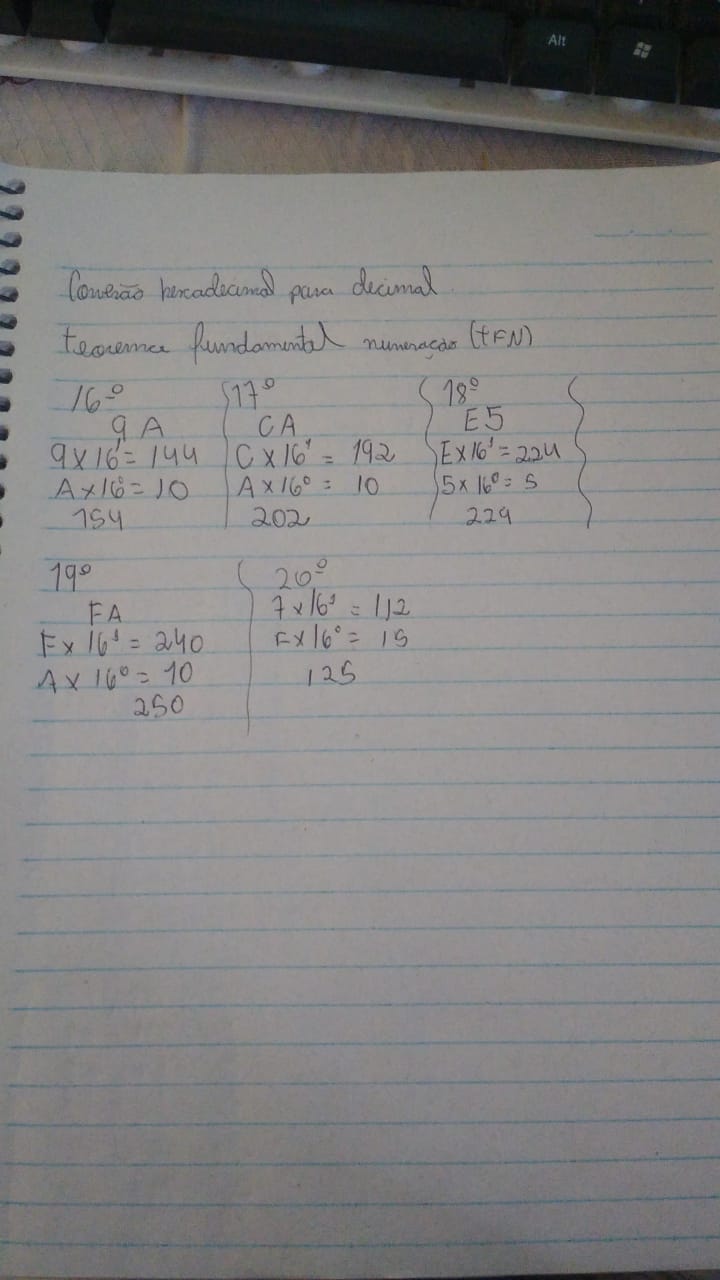 Alt
Conversão hexadecimal para decimal
teorema fundamental numeração (tFN)
16º
9A
9x16¹=144
Ax16⁰=10
154
17º
CA
Cx16¹ = 192
Ax16⁰ = 10
202
18º
E5
Ex16¹=224
5x16⁰=5
229
19º
FA
Fx16¹=240
Ax16⁰=10
250
20º
7x16¹=112
Fx16⁰=15
125